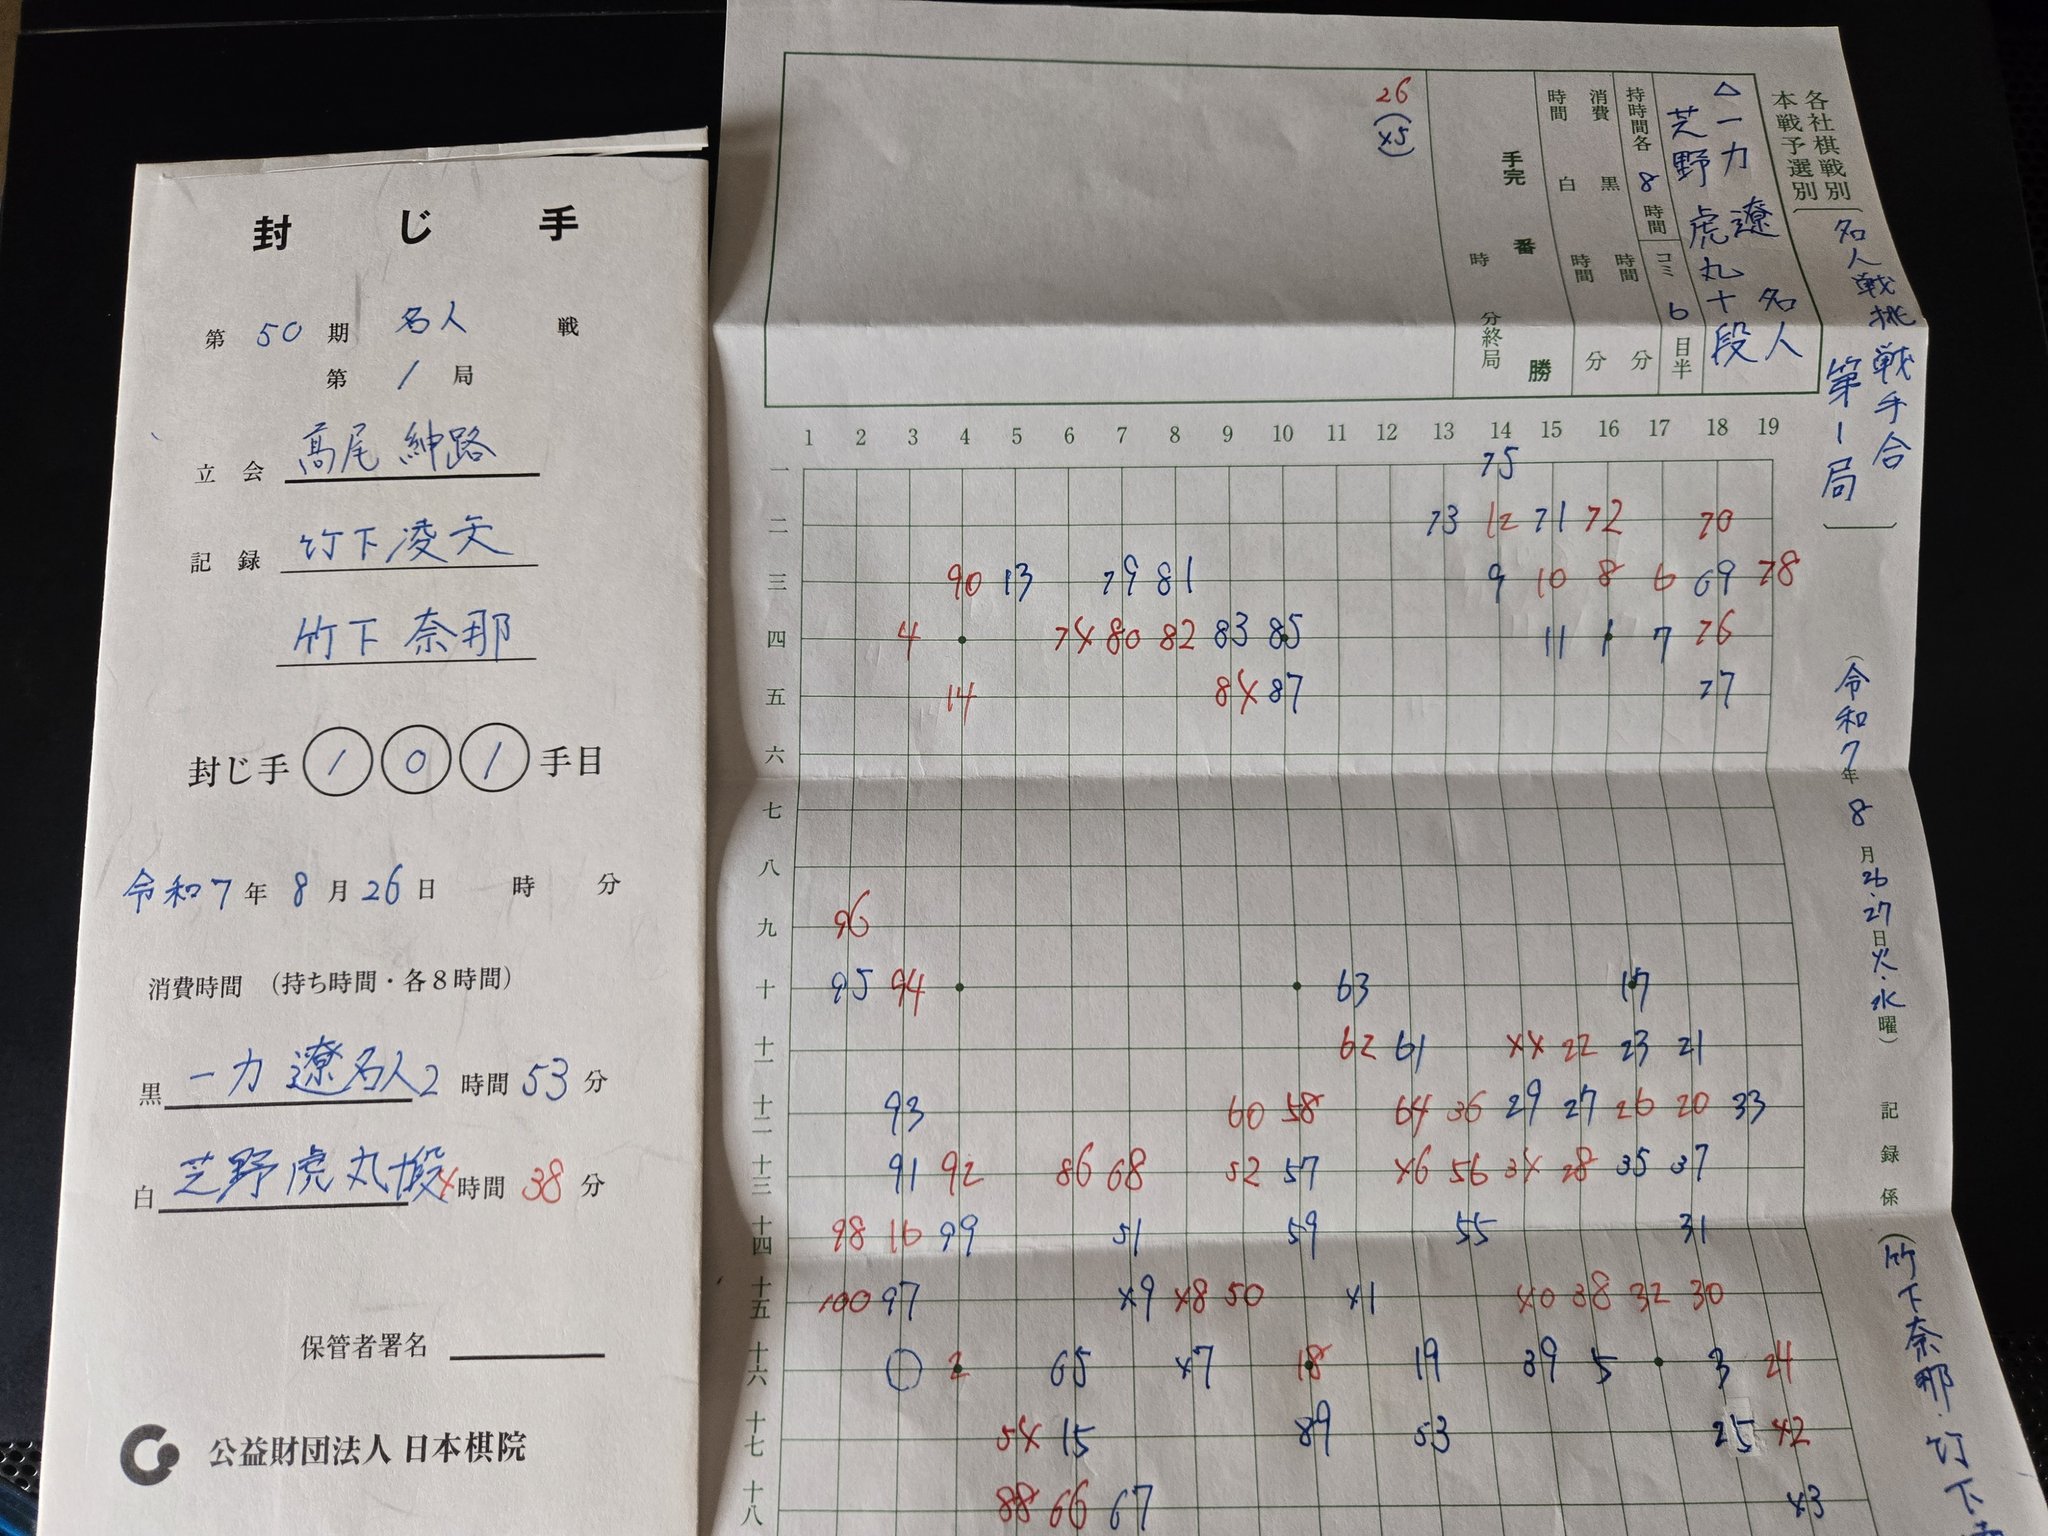 封じ手
第50期 名人 戦
第1局
立会 髙尾 紳路
記録 竹下凌矢
竹下奈那
封じ手 101 手目
令和7年 8月26日 時 分
消費時間 (持ち時間・各8時間)
黒 一力 遼名人 2時間53分
白 芝野虎丸十段 4時間38分
保管者署名
公益財団法人 日本棋院
各社棋戦別
本戦予選別
名人戦挑戦手合
第1局
(令和7年8月26.27日火.水曜)
記録係 (竹下奈那.竹下
△一力 遼 名人
芝野虎丸十段
持時間各 8 時間
コミ 6 目半
消費 黒 時間 分
時間 白 時間 分
手完 番 勝
時 分終局
26
(45)
1 2 3 4 5 6 7 8 9 10 11 12 13 14 15 16 17 18 19
一 75
二 73 12 71 72 70
三 90 13 79 81 9 10 8 6 69 78
四 4 74 80 82 83 85 11 1 7 76
五 14 84 87 77
六
七
八
九 96
十 95 94 63 17
十一 62 61 44 22 23 21
十二 93 60 58 64 36 29 27 26 20 33
十三 91 92 86 68 52 57 46 56 34 28 35 37
十四 98 16 99 51 59 55 31
十五 100 97 49 48 50 41 40 38 32 30
十六 2 65 47 18 19 39 5 3 24
十七 54 15 89 53 25 42
十八 88 66 67 43